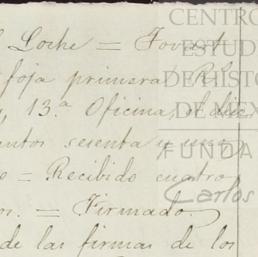 Locke = Fovert
foja primera
13.ª Oficina, el diez
sesenta y uno
= Recibido cuatro
= Firmado.
de las firmas de los
CENTRO
ESTUD
DE HISTO
DE MÉX
FUNDA
Carlos